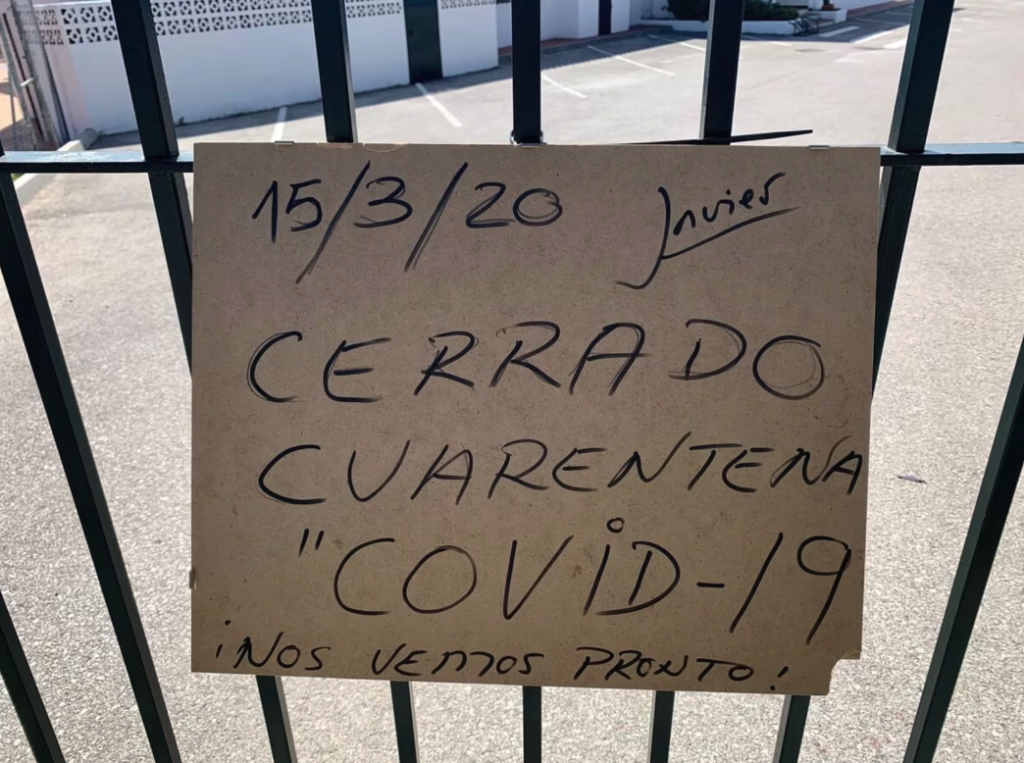 15/3/20 Javier
CERRADO
CUARENTENA
"COVID-19
¡NOS VEMOS PRONTO!